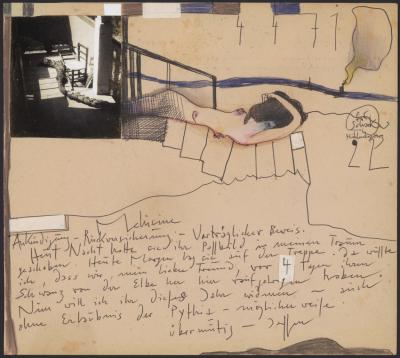 4 4 7 1
22
Melusine
Ankündigung – Rückversicherung – Verträglicher Beweis.
Heut Nacht hatte sich ihr Paßbild in meinen Traum
geschoben. Heute Morgen lag sie auf der Treppe. Da wußte
ich, dass wir, mein lieber Freund, vor 4 Tagen ihren
Schwanz von der Elbe her hier raufgezogen haben.
Nun will ich ihr dieses Jahr widmen – auch
ohne Erlaubnis der Pythia – möglicherweise
übermütig –